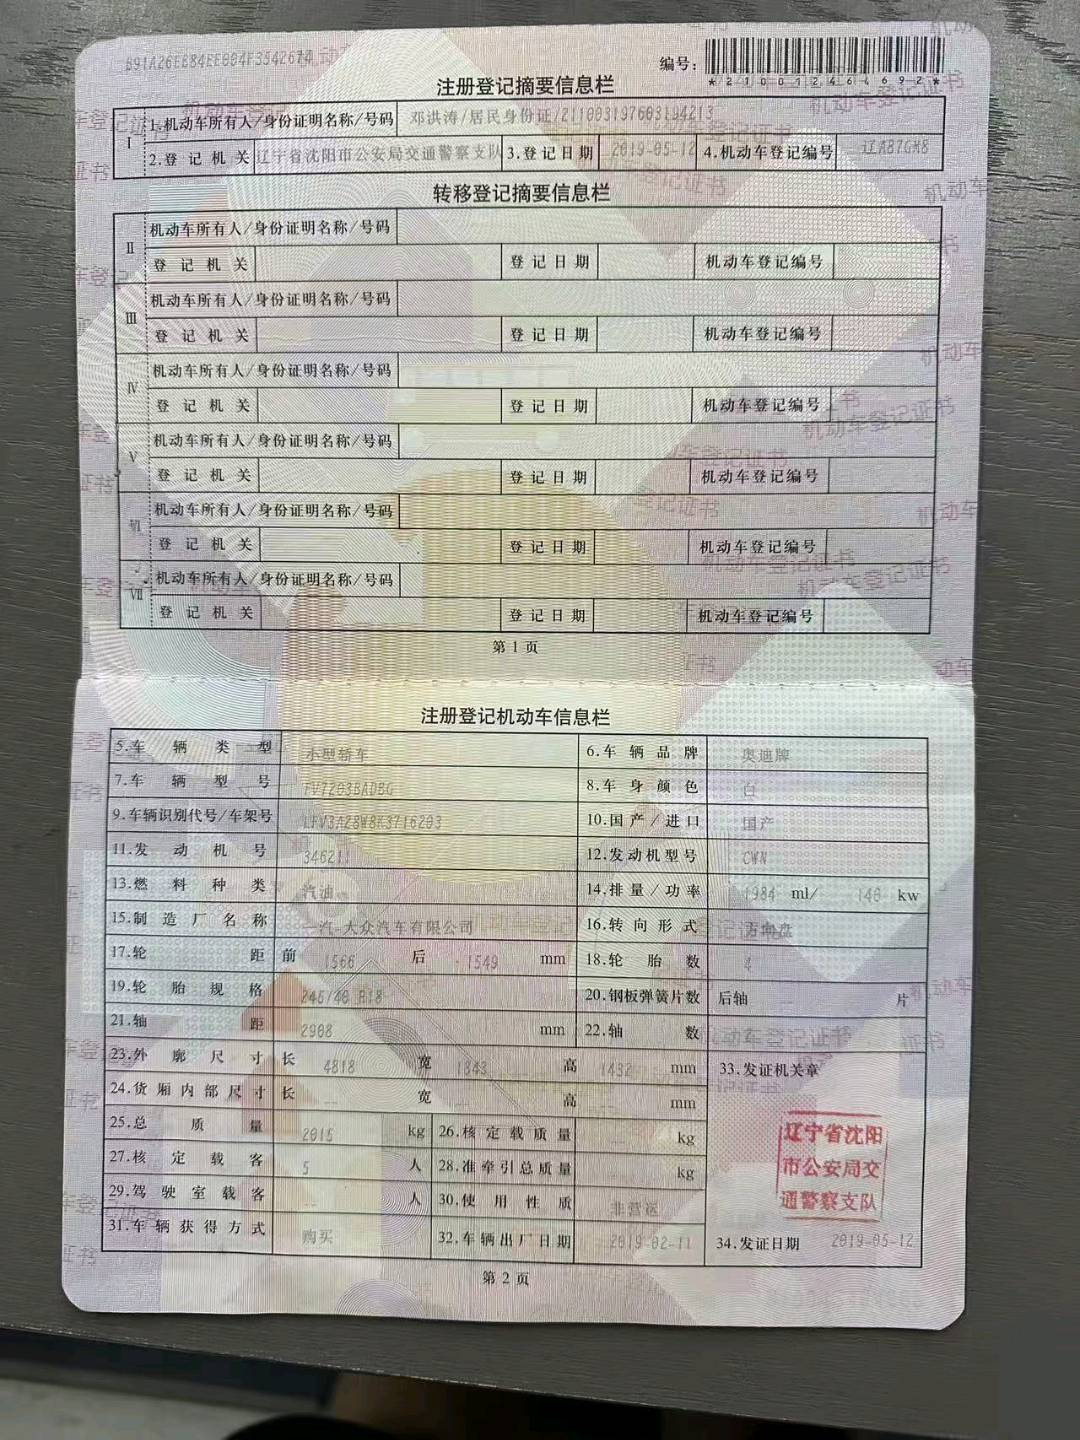 编号：
*210012464692*
注册登记摘要信息栏
Ⅰ 1.机动车所有人/身份证明名称/号码 邓洪涛/居民身份证/211003197603194213
2.登记机关 辽宁省沈阳市公安局交通警察支队 3.登记日期 2019-05-12 4.机动车登记编号
转移登记摘要信息栏
Ⅱ 机动车所有人/身份证明名称/号码
登记机关 登记日期 机动车登记编号
Ⅲ 机动车所有人/身份证明名称/号码
登记机关 登记日期 机动车登记编号
Ⅳ 机动车所有人/身份证明名称/号码
登记机关 登记日期 机动车登记编号
Ⅴ 机动车所有人/身份证明名称/号码
登记机关 登记日期 机动车登记编号
Ⅵ 机动车所有人/身份证明名称/号码
登记机关 登记日期 机动车登记编号
Ⅶ 机动车所有人/身份证明名称/号码
登记机关 登记日期 机动车登记编号
第1页
注册登记机动车信息栏
5.车辆类型 小型轿车 6.车辆品牌 奥迪牌
7.车辆型号 FV7203BADBG 8.车身颜色 白
9.车辆识别代号/车架号 LFV3A28W8K3716203 10.国产/进口 国产
11.发动机号 12.发动机型号 CWN
13.燃料种类 汽油 14.排量/功率 1984 ml/ 140 kw
15.制造厂名称 一汽-大众汽车有限公司 16.转向形式 方向盘
17.轮距 前 1566 后 1549 mm 18.轮胎数 4
19.轮胎规格 245/40 R18 20.钢板弹簧片数 后轴 -- 片
21.轴距 2908 mm 22.轴数
23.外廓尺寸 长 4818 宽 1843 高 1432 mm 33.发证机关章
24.货厢内部尺寸 长 -- 宽 高 mm
25.总质量 2015 kg 26.核定载质量 kg
辽宁省沈阳
市公安局交
通警察支队
27.核定载客 5 人 28.准牵引总质量 kg
29.驾驶室载客 -- 人 30.使用性质 非营运
31.车辆获得方式 购买 32.车辆出厂日期 2019-02-11 34.发证日期 2019-05-12
第2页